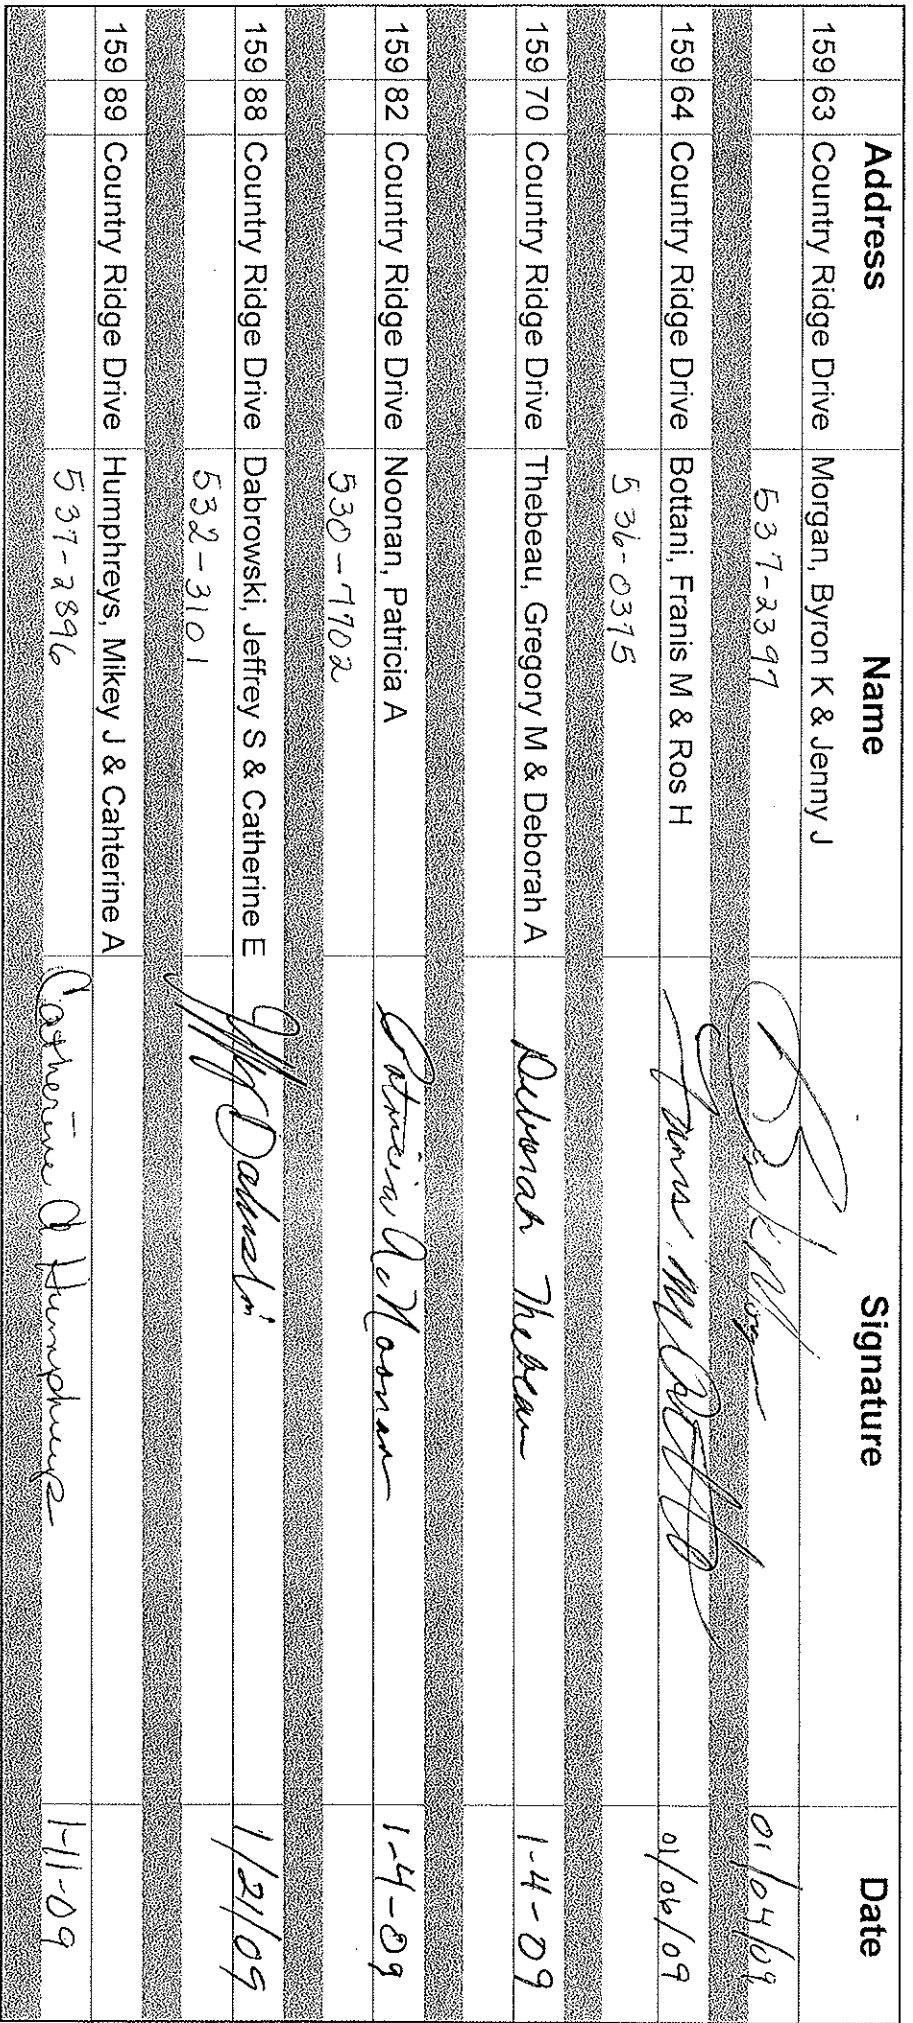 Address Name Signature Date
159 63 Country Ridge Drive Morgan, Byron K & Jenny J
537-2397 01/04/09
159 64 Country Ridge Drive Bottani, Franis M & Ros H 01/06/09
536-0375
159 70 Country Ridge Drive Thebeau, Gregory M & Deborah A Deborah Thebeau 1-4-09
159 82 Country Ridge Drive Noonan, Patricia A Patricia A Noonan 1-4-09
530-7702
159 88 Country Ridge Drive Dabrowski, Jeffrey S & Catherine E 1/21/09
532-3101
159 89 Country Ridge Drive Humphreys, Mikey J & Cahterine A
537-2896 Catherine A Humphreys 1-11-09